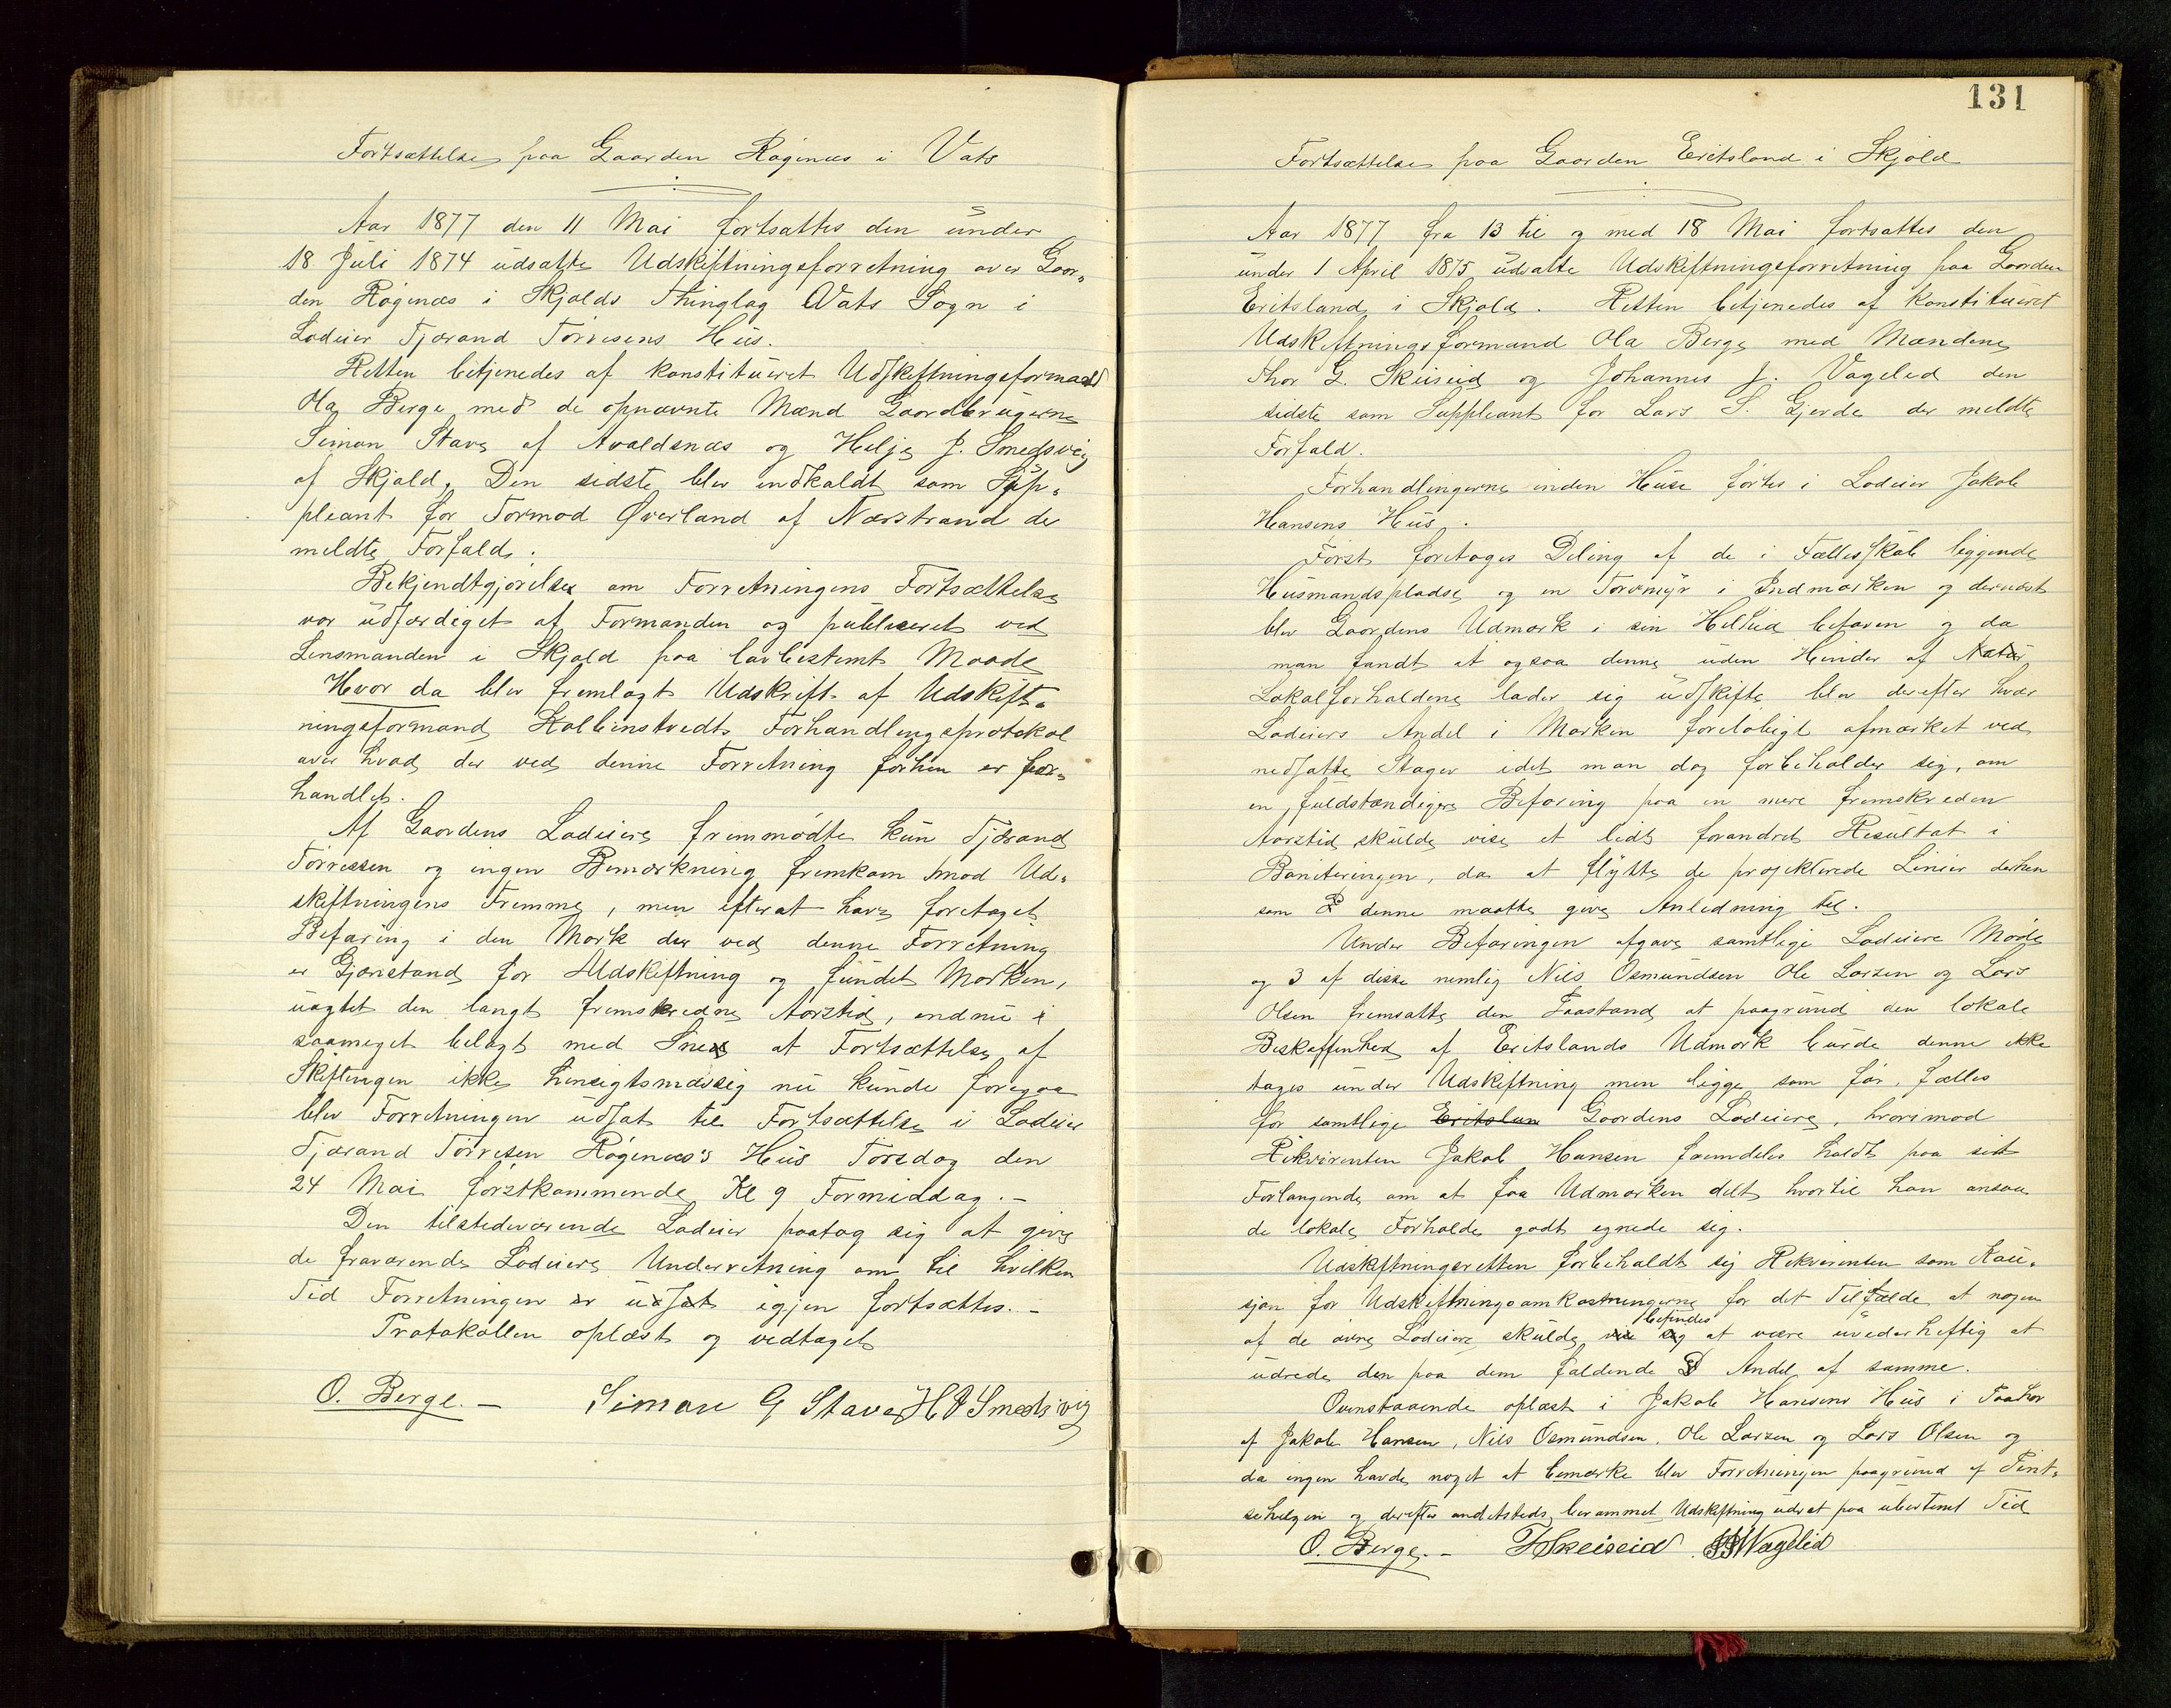 Fortsættelse paa Gaarden Røgenæs i Vats
Aar 1877 den 11 Mai fortsattes den under
18 Juli 1874 udsatte Udskiftningsforretning over Gaar-
den Røgenæs i Skjolds Thinglag Vats Sogn i
Lodeier Tjærand Tørresens Hus.
Retten betjenedes af konstitueret Udskiftningsformand
Ola Berge med de opnævnte Mænd Gaardbrugerne
Simon Stave af Avaldsnæs og Helje J. Smedsvig
af Skjold, Den sidste blev indkaldt som Sup-
pleant for Tormod Øverland af Nærstrand der
meldte Forfald.
Bekjendtgjørelse om Forretningens Fortsættelse
var udfærdiget af Formanden og publiceret ved
Lensmanden i Skjold paa lovbestemt Maade
Hvor da blev fremlagt Udskrift af Udskift-
ningsformand Kolbenstvedts Forhandlingsprotokol
over hvad der ved denne Forretning forhen er for-
handlet.
Af Gaardens Lodeiere fremmødte kun Tjærand
Tørressen og ingen Bemærkning fremkom mod Ud-
skiftningens Fremme, men efterat have foretaget
Befaring i den Mark der ved denne Forretning
er Gjenstand for Udskiftning og fundet Marken,
uagtet den langt fremskredne Aarstid, endnu i
saameget belagt med Snee at Fortsættelse af
Skiftingen ikke hensigtsmæssig nu kunde foregaa
blev Forretningen udsat til Fortsættelse i Lodeier
Tjærand Tørresen Røgenæs's Hus Torsdag den
24 Mai førstkommende Kl 9 Formiddag. -
Den tilstedeværende Lodeier paatog sig at give
de fraværende Lodeiere Underretning om til hvilken
Tid Forretningen er udsat igjen fortsættes. -
Protokollen oplæst og vedtaget
O. Berge. - Simon G Stave H J Smedsvig
131
Fortsættelse paa Gaarden Eritsland i Skjold
Aar 1877 fra 13 til og med 18 Mai fortsattes den
under 1 April 1875 udsatte Udskiftningsforretning paa Gaarden
Eritsland i Skjold. Retten betjenedes af konstitueret
Udskiftningsformand Ola Berge med Mændene
Thor G. Skeiseid og Johannes J. Vageled den
sidste som Suppleant for Lars S. Gjerde der meldte
Forfald.
Forhandlingerne inden Huse førtes i Lodeier Jakob
Hansens Hus.
Først foretoges Deling af de i Fællesskab liggende
Husmandspladse og en Torvmyr i Indmarken og dernæst
blev Gaardens Udmark i sin Helhed befaren og da
man fandt at ogsaa denne uden Hinder af Natur
Lokalforholdene lader sig udskifte blev derefter hver
Lodeiers Andel i Marken foreløbigt afmærket ved
nedsatte Stager idet man dog forbeholder sig, om
en fuldstændigere Befaring paa en mere fremskreden
Aarstid skulde vise et lidt forandret Resultat i
Boniteringen, da at flytte de projekterede Linier derhen
som denne maatte give Anledning til.
Under Befaringen afgave samtlige Lodeiere Møde
og 3 af disse nemlig Nils Osmundsen Ole Larsen og Lars
Olsen fremsatte den Paastand at paagrund den lokale
Beskaffenhed af Eritslands Udmark burde denne ikke
tages under Udskiftning men ligge som før, fælles
for samtlige Eritslan Gaardens Lodeiere, hvorimod
Rekvirenten Jakob Hansen fremdeles holdt paa sit
Forlangende om at faa Udmarken delt hvortil han ansaa
de lokale Forholde godt egnede sig.
Udskiftningsretten forbeholdt sig Rekvirenten som Kau-
sjon for Udskiftningsomkostningerne for det Tilfælde at nogen
af de øvre Lodeiere skulde vise sig befindes at være uvederheftig at
udrede den paa dem faldende Andel af samme.
Ovenstaaende oplæst i Jakob Hansens Hus i Paahør
af Jakob Hansen, Nils Osmundsen, Ole Larsen og Lars Olsen og
da ingen havde noget at bemærke blev Forretningen paagrund af Pint-
sehelgen og derefter andetsteds berammet Udskiftning udsat paa ubestemt Tid
O. Berge. - T Skeiseid JJ Vagelid